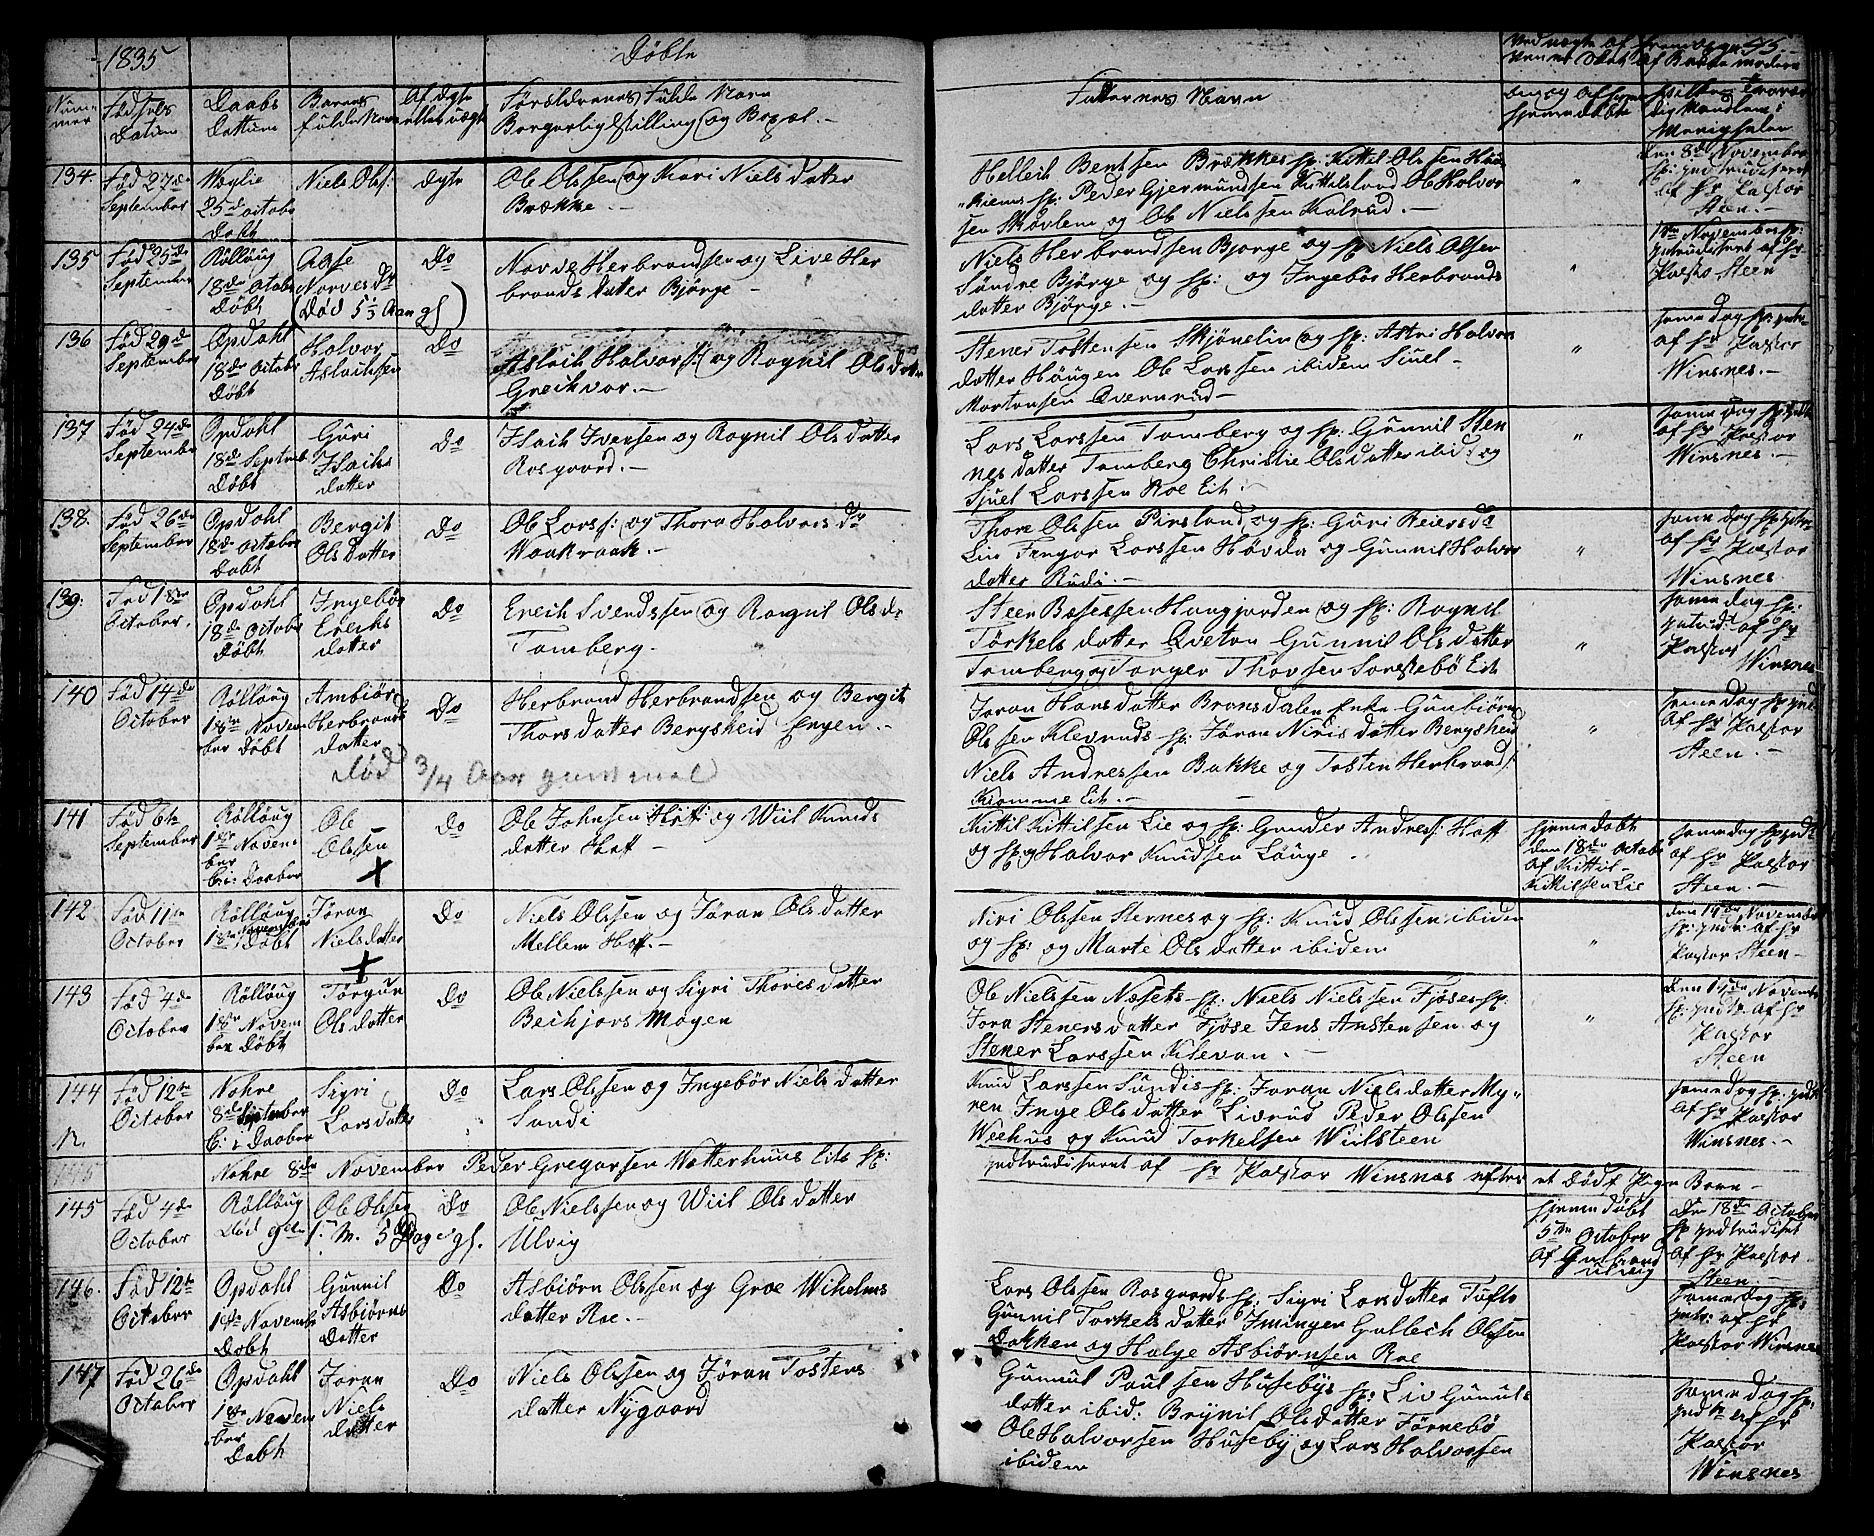 1835 Döbte
45.
Num-
mer
Födsels
Datum
Daabs
Dattum
Barnes
fulde Navn
Af Ægte
eller uægte
Foreldrenes Fulde Navn
Borgerlig Stilling og Bopæl.-
Faddernes Navn
134. Föd 27de
September
Wæglie
25de octobr
Döbt
Niels Ols:
ægte
Ole Olssen og Kari Niels datter
Brække.-
Hellech Bentsen Brække sp: Kittil Olssen
sp: Peder Gjermundsen Kittilsland Ole Halvor
sen Skovlem og Ole Nielssen Kalrud.-
den 8de November
sp: yndtrudiseret
af hr Pastor
Steen.-
135 Föd 25de
September
Röllaug
18de Octobr
Döbt
Aase
Norves Dr
(Död 5 1/2 Aar gl)
Do
Norve Herbrandsen og Live Her
brands datter Björge.-
Niels Herbrandsen Björge og sp: Niels Olsen
Söndre Björge og sp: og Ingebör Herbrands
datter Björge.-
1ste November sp:
yntrudiseret af hr
Pastor Steen
136 Föd 29de
September
Opdahl
18de Octobr
Döbt
Halvor
Aslachsen
Do
Aslach Halvors: og Ragnil Ols datter
Grechvor.-
Stener Tostensen Skjönelin og sp: Astri Halvor
datter Haugen Ole Larssen ibidem Siuel
Mortensen Qvernrud-
same dag sp: ynt:
af hr Pastor
Winsnes.-
137 Föd 24de
September
Opdahl
18de Septemb
Döbt
Guri
Islachs
datter
Do
Islach Iversen og Ragnil Ols datter
Rosgaard.-
Lars Larssen Tomberg og sp: Gunnil Sten
nes datter Tomberg Christie Ols datter ibid: og
Siuel Larssen Roe Eit:
same dag sp: yndt
af hr Pastor
Winsnes.-
138. Föd 26de
September
Opdahl
18de Octobr
Döbt
Bergit
Ols Datter
Do
Ole Lars: og Thora Halvors dr
Haakaraak.-
Thore Olssen Pirsland og sp: Guri Reiers dr
Lie Tengor Larssen Hövda og Gunnil Halvor
datter Rudi.-
same dag sp: yntr
af hr Pastor
Winsnes
139. Föd 18de
October.
Opdahl
18de October
Döbt
Ingebör
Erechs
datter
Do
Erech Svendssen og Rangnil Ols dr
Tomberg.
Steen Bosessen Haugjorden og sp: Ragnil
Törkels datter Qveton Gunnil Ols datter
Tomberg og Torger Thovsen Sorkebö Eit
same dag sp:
yntrd: af hr
Pastor
Winsnes
140 Föd 14de
October
Rollaug
18de Novem
ber Döbt
Ambiör
Herbrands
datter
Do
Herbrand Herbrandsen og Bergit
Thors datter Bergsheid Engen.-
död 3/4 Aar gammal
Joran Hans datter Bransdalen Enke Gunbiörn
Ols sen Klevruds sp: Jöran Niris datter Bergsheid
Niels Andressen Bakke og Tosten Herbrands:
Kromme Eit.-
same dag sp: yndt
af hr Pastor
Steen.-
141 Föd 6te
September
Rollaug
1ste Novem
ber
bi: Daaber
Ole
Olssen
+
Do
Ole Johnsen Hoff: og Wiil Knuds
datter Hoff.-
Kittil Kittilsen Lie og sp: Gunder Andres: Hoff
og sp: og Halvor Knudsen Lauge.
hjemme döbt
den 18de Octobr
af Kittil
Kittilsen Lie
same dag sp: yndt
af hr Pastor
Steen.-
142. Föd 11te
October
Rollaug
1ste November
Döbt
Jöran
Niels datter
+
Do
Niels Olssen og Jöran Ols datter
Mellem Hoff.-
Niri Olssen Sternes og sp: Knud Olssen ibiden
og sp: og Marte Ols datter ibidem
den 14de November
sp: yndtr: af hr
Pastor Steen-
143 Föd 4de
October
Rollaug
1ste Novem
ber Döbt
Törgun
Ols datter
Do
Ole Nielssen og Sigri Thores datter
Bechjors Mogen
Ole Nielssen Næsets sp: Niels Nielssen Fjöse sp:
Jora Steners datter Fjöse Jens Anstensen og
Stener Larssen Klevan.-
den 14de Novembr
sp: yndtr af hr
Pastor
Steen
144 Föd 12te
October
Nohre
8de September
bi: i Daaber
Sigri
Lars datter
Do
Lars Olssen og Ingebör Niels datter
Sundi
Knud Larssen Sundis sp: Joran Niels datter My,,
ren Inge Ols datter Liverud Peder Olssen
Weehus og Knud Torkelsen Wiilsteen
same dag sp: yndt
af hr Pastor
Winsnes.-
Nohre 8de November Peder Gregarsen Watterhuus Eits sp: yndtrudiseret af hr Pastor Winsnes efter et Död P Barn-
145 Föd 4de
October
Rollaug
Död 9de
Ole Olsen
1: M. 5 Dag gl.
Do
Ole Nielssen og Wiil Ols datter
Ulvig
hjemmedöbt
5te October
af Gulbrand
Ulvig
den 18de October
sp yndtrudiset
af hr Pastor
Steen.-
146. Föd 12te
October
Opdahl
1ste Novemb
Döbt
Gunnil
Asbiörns
Datter
Do
Asbiörn Olssen og Groe Wilhelms
datter Roe.-
Lars Olssen Rosgaards sp: Sigri Lars datter Tufte
Gunnil Torkels datter Iminger Gullech Olssen
Dokken og Helge Asbiörnsen Roe
same dag sp:
yntr: af hr
Pastor Winsnes
147 Föd 26de
October
Opdahl
1ste Novem
ber
Döbt
Joran
Niels
datter
Do
Niels Olssen og Jöran Tostens
datter Nygaard
Gunnul Paulsen Husebys sp: Liv Gunnuls
datter ibid: Brynil Olsdatter Förnebö
Ole Halvorsen Huseby og Lars Halvorssen
ibidem
same dag sp:
yndtr af hr
Pastor
Winsnes